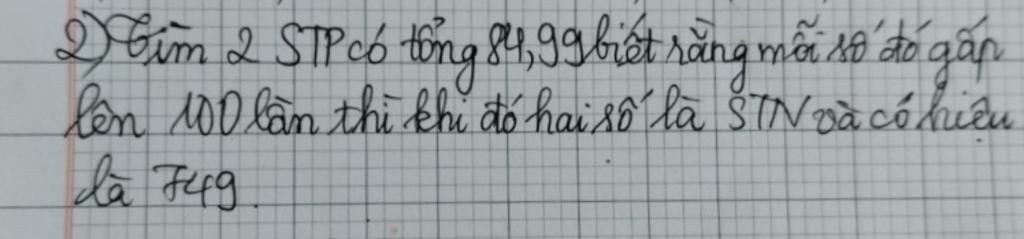 2) Tìm 2 STP có tổng 84,99 biết rằng mỗi số đó gấp
lên 100 lần thì khi đó hai số là STN và có hiệu
là 749.